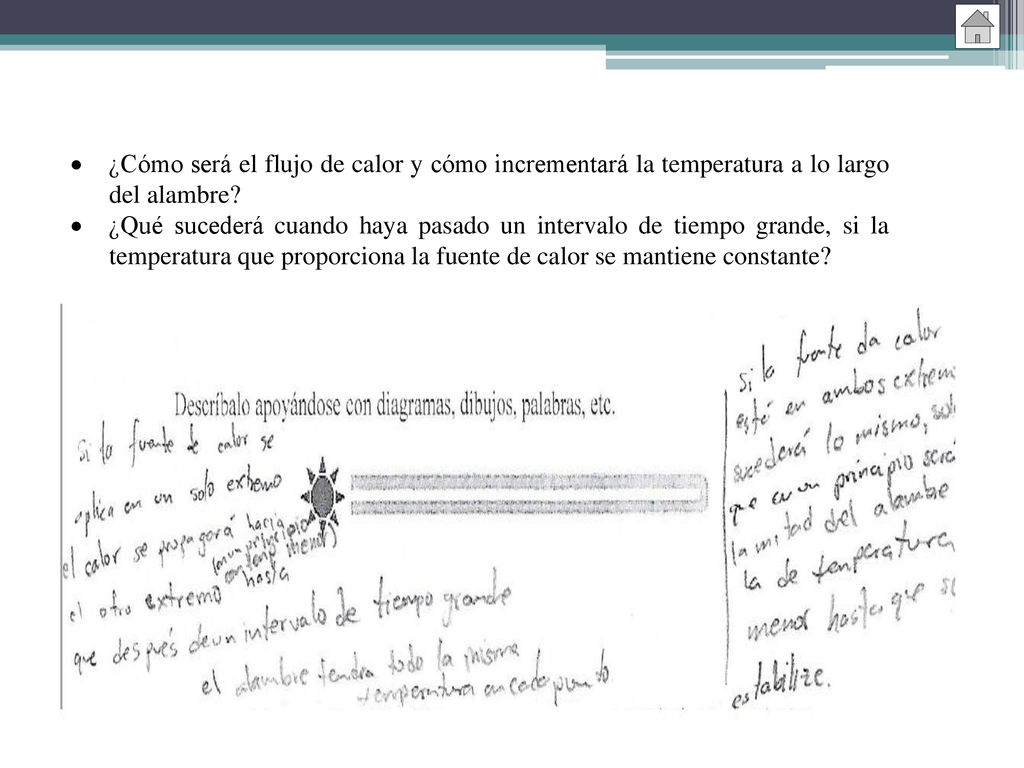 • ¿Cómo será el flujo de calor y cómo incrementará la temperatura a lo largo
del alambre?
• ¿Qué sucederá cuando haya pasado un intervalo de tiempo grande, si la
temperatura que proporciona la fuente de calor se mantiene constante?
Descríbalo apoyándose con diagramas, dibujos, palabras, etc.
si la fuente de calor se
aplica en un solo extremo
el calor se propagará hacia
(en un principio
con temp menor)
el otro extremo hasta
que después de un intervalo de tiempo grande
el alambre tendra todo la misma
temperatura en cada punto
si la fuente da calor
está en ambos extrem
sucederá lo mismo, sol
que en un principio será
la mitad del alambre
la de temperatura
menor hasta que s
estabilize.